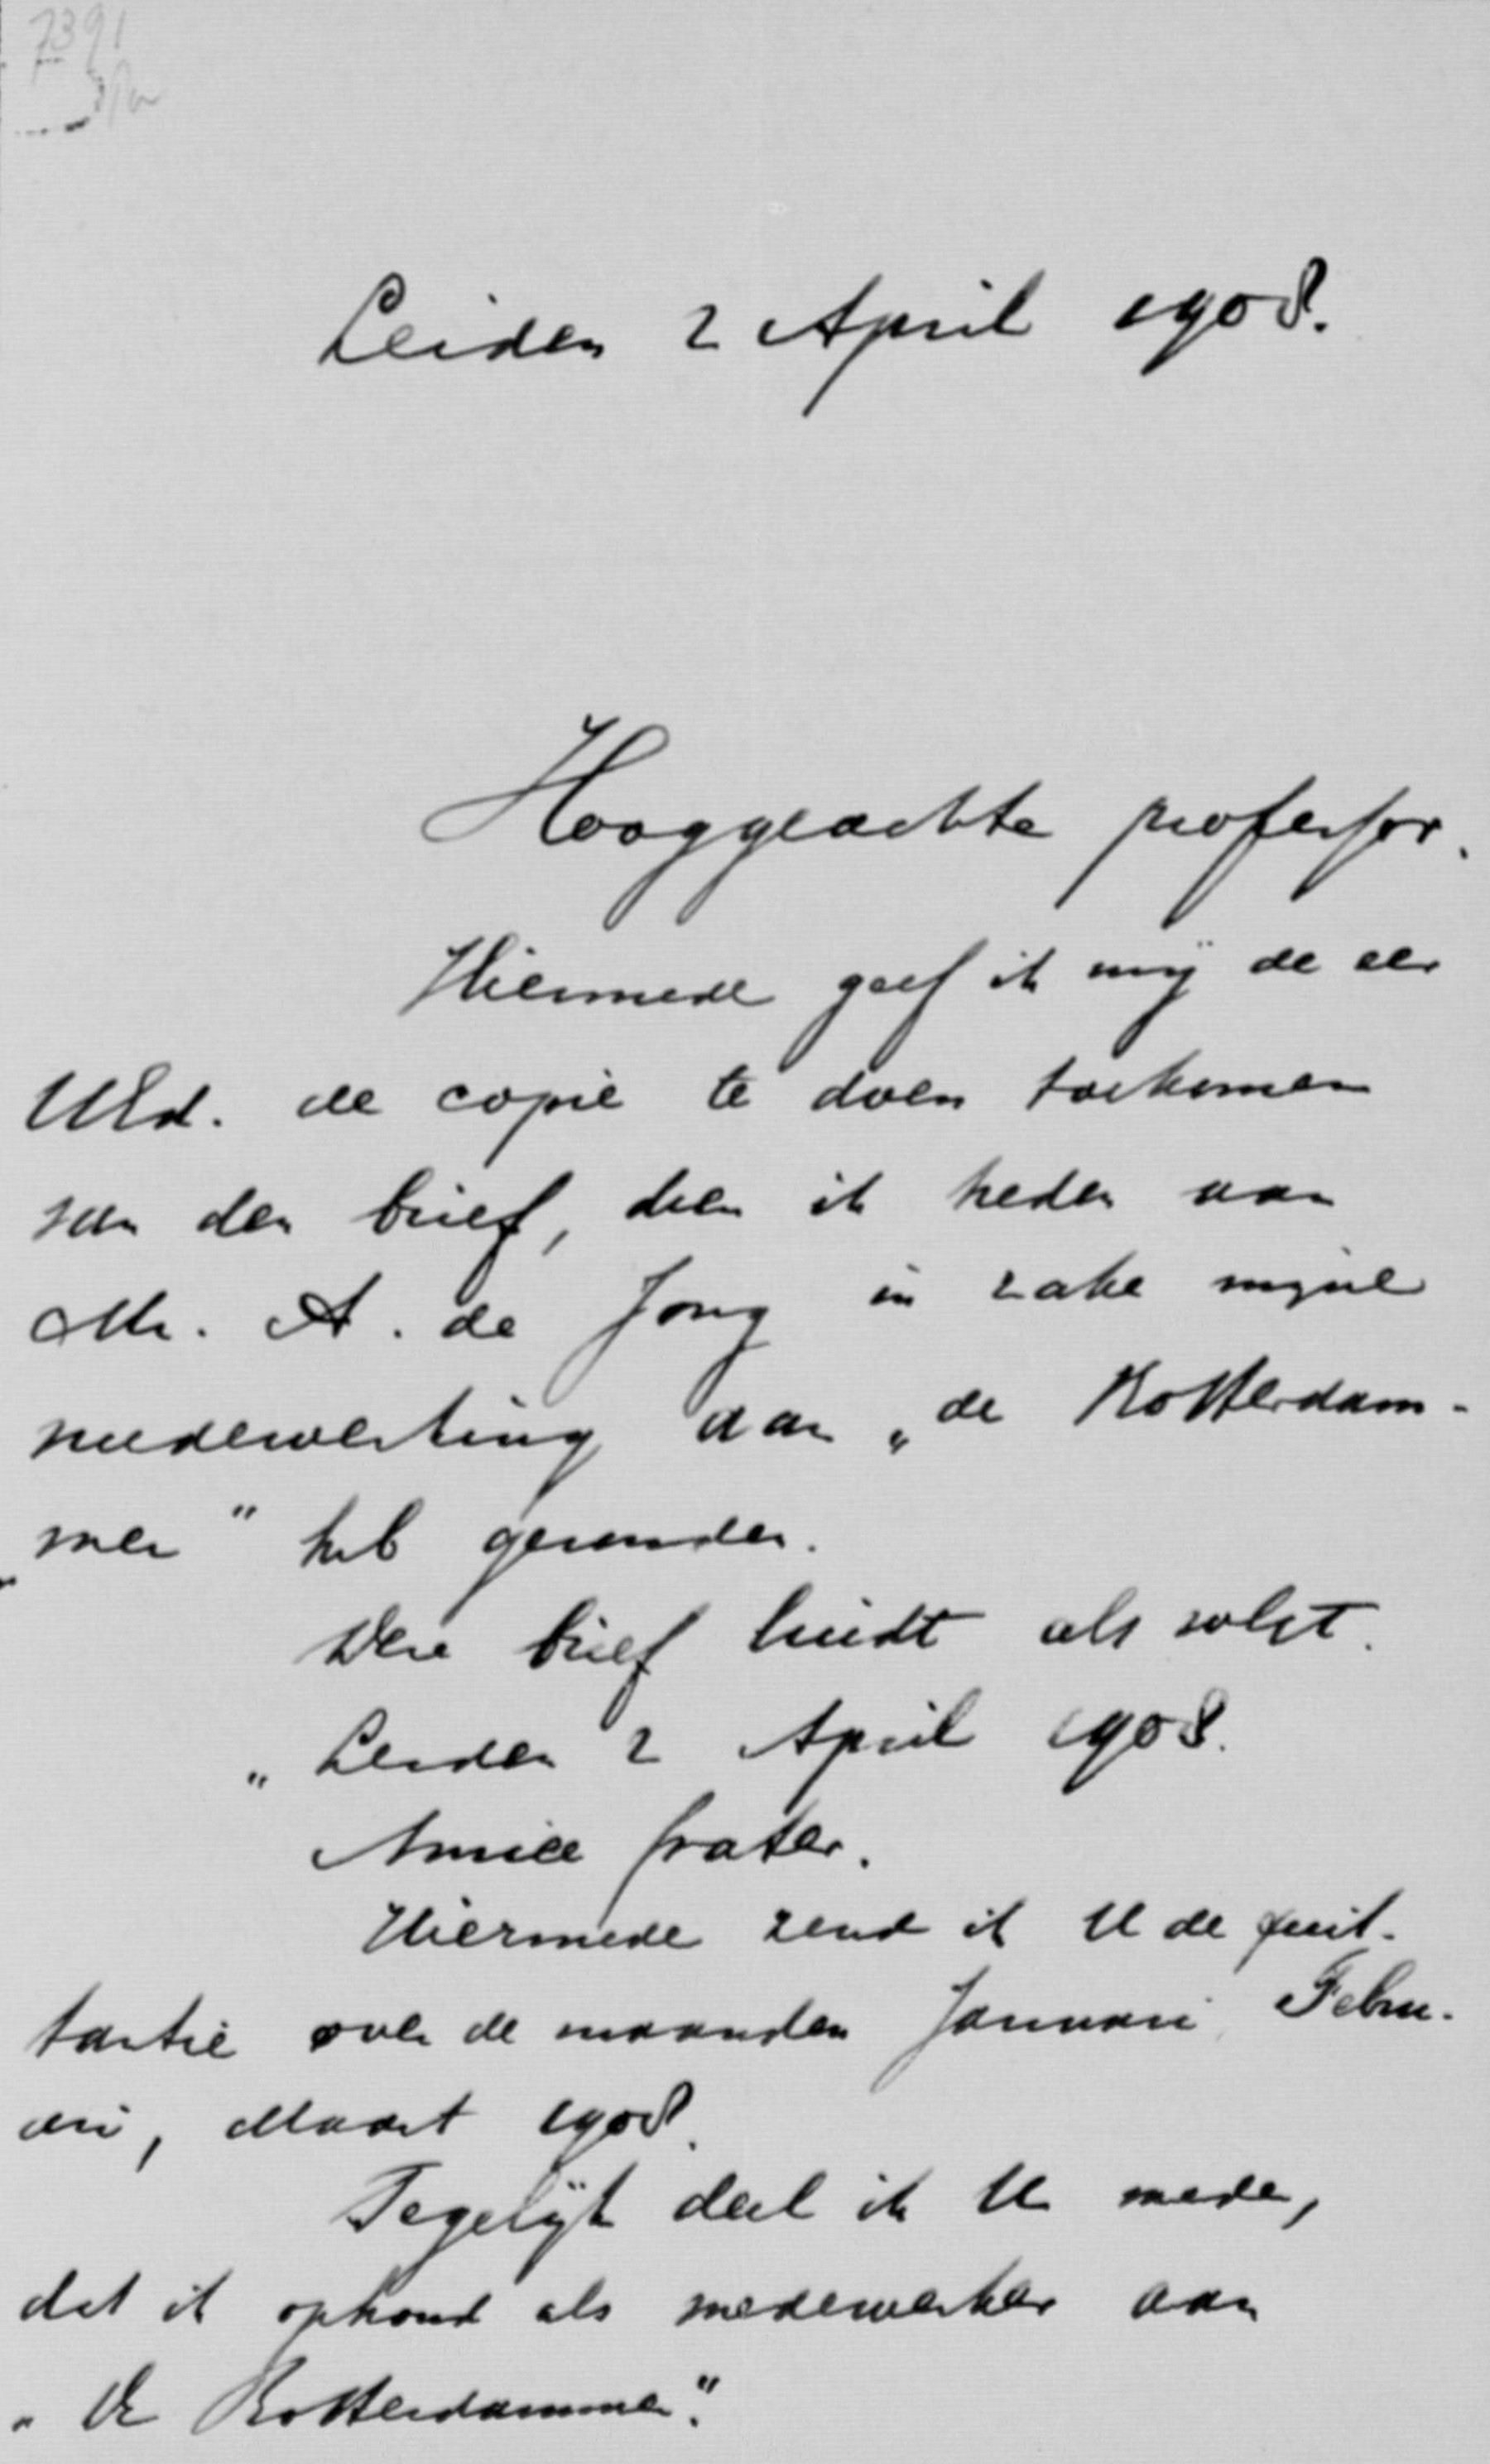 7391
Leiden 2 April 1908.
Hooggeachte professor.
Hiermede geef ik mij de eer
UEd. de copie te doen toekomen
van den brief, dien ik heden aan
Mr. A. de Jong in zake mijne
medewerking aan „de Rotterdam-
mer" heb gezonden.
Deze brief luidt als volgt.
„Leiden 2 April 1908.
Amice frater.
Hiermede zend ik U de quit-
tantie over de maanden Januari, Febru-
ari, Maart 1908.
Tegelijk deel ik U mede,
dat ik ophoud als medewerker aan
„De Rotterdammer".